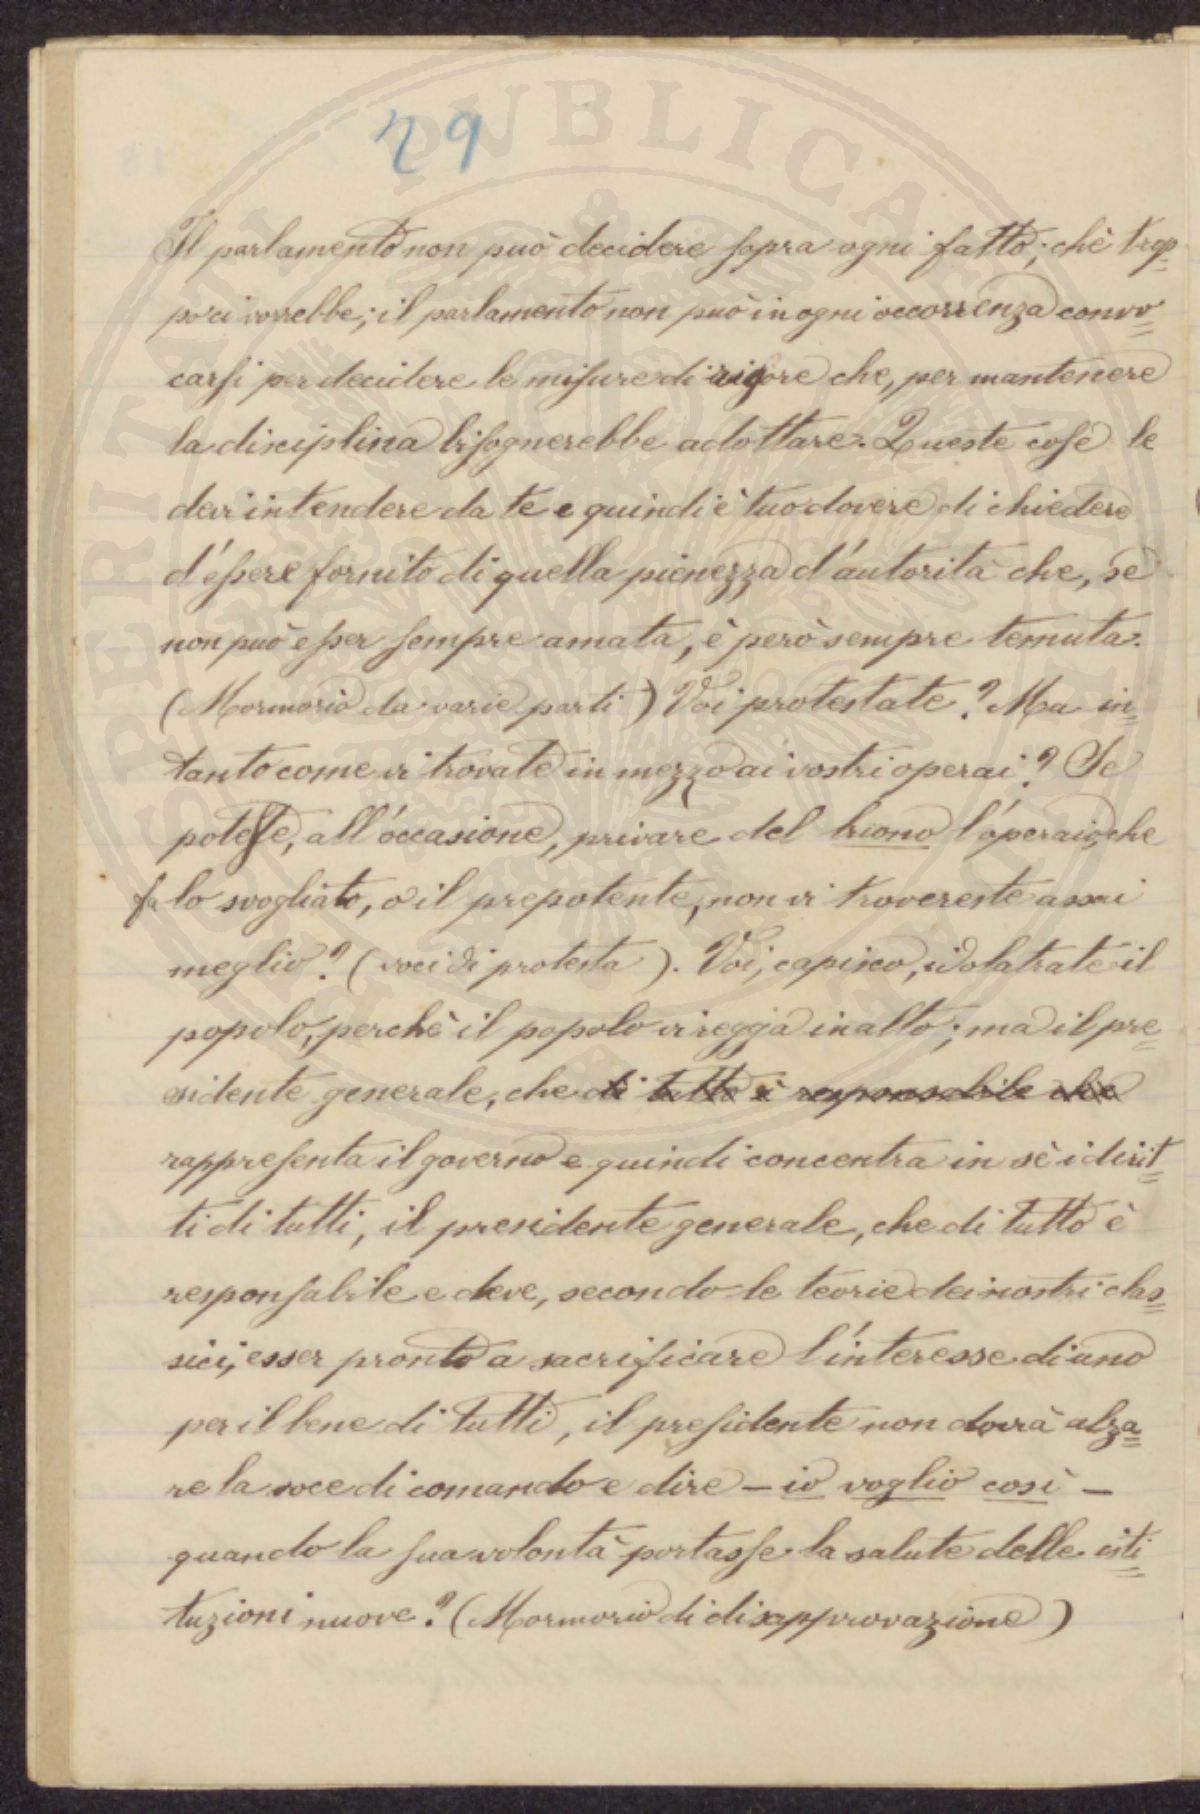 29
Il parlamento non può decidere sopra ogni fatto; chè trop=
po ci vorrebbe; il parlamento non può in ogni occorrenza convo=
carsi per decidere le misure di rigore che, per mantenere
la disciplina bisognerebbe adottare. Queste cose le
devi intendere da te e quindi è tuo dovere di chiedere
d'essere fornito di quella pienezza d'autorità che, se
non può esser sempre amata, è però sempre temuta.
(Mormorio da varie parti) Voi protestate? Ma in=
tanto come vi trovate in mezzo ai vostri operai? Se
poteste, all'occasione, privare del buono l'operaio, che
fa lo svogliato, o il prepotente, non vi trovereste assai
meglio? (voci di protesta). Voi, capisco, idolatrate il
popolo, perchè il popolo vi regga in alto; ma il pre=
sidente generale, che di tutto è responsabile che
rappresenta il governo e quindi concentra in sè i dirit=
ti di tutti, il presidente generale, che di tutto è
responsabile e deve, secondo le teorie dei nostri clas=
sici, esser pronto a sacrificare l'interesse di uno
per il bene di tutti, il presidente non dovrà alza=
re la voce di comando e dire – io voglio così –
quando la sua volontà portasse la salute delle isti=
tuzioni nuove? (Mormorio di disapprovazione)